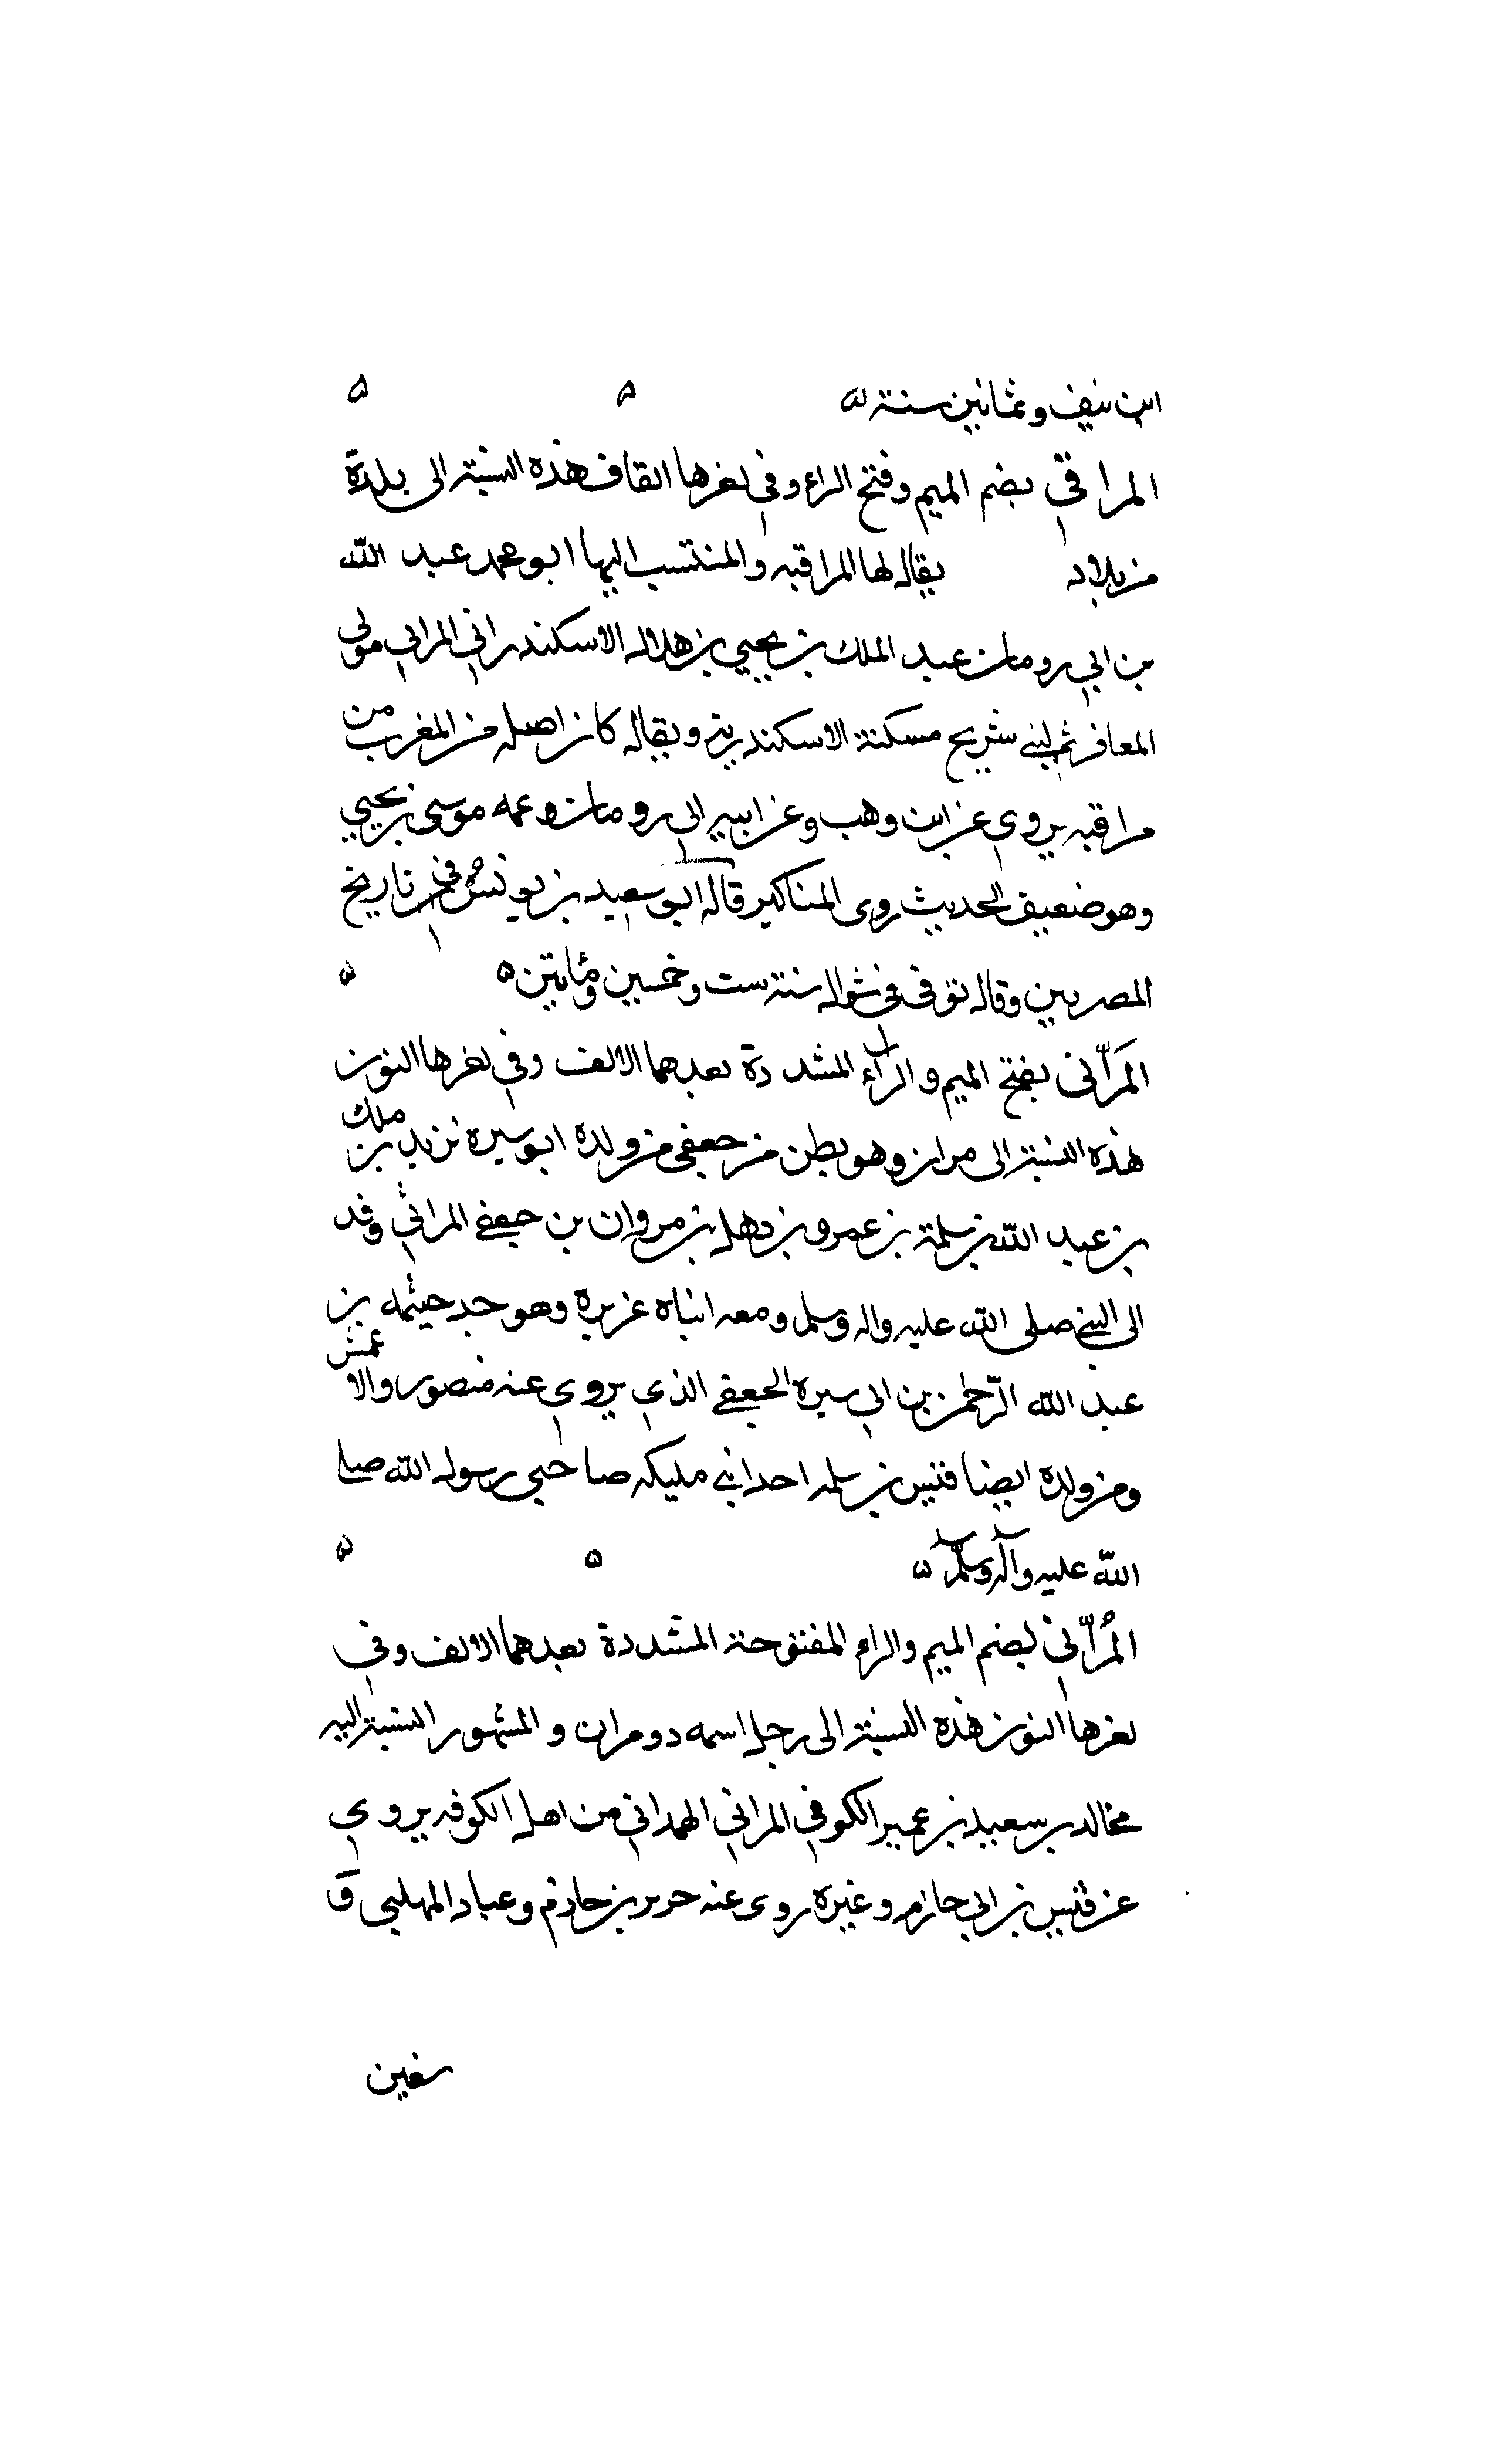 ابن نيف وثمانين سنة ه ه ه
المراقي بضم الميم وفتح الراء وفي اخرها القاف هذه النسبة الى بلدة
من بلاد يقال لها المراقيه والمنتسب اليها ابو محمد عبد الله
بن ابي رومان عبد الملك بن يحيي بن هلال الاسكندراني المرابي مولى
المعافر ثم لبني شريح مسكنة الاسكندرية ويقال كان اصله من المغرب من
مراقيه يروي عن ابن وهب وعن ابيه ابي رومان وعمه موسى بن يحيي
وهو ضعيف الحديث روى المناكير قال ابو سعيد بن يونس في تاريخ
المصريين وقال توفى في شوال سنة ست وخمسين ومائتين ه ه
المَرّاني بفتح الميم والراء المشددة بعدهما الالف وفي اخرها النون
هذه النسبة الى مران وهو بطن من جعفي من ولده ابو سبرة يزيد بن ملك
بن عبد الله بن سلمة بن عمرو بن ذهل بن مروان بن جعفي المراني وفد
الى النبي صلى الله عليه واله وسلم ومعه ابناه عزيرة وهو جد حيثمه بن
عبد الله الرحمن بن ابي سبرة الجعفي الذي يروي عنه منصور والاعمش
ومن ولده ايضا قيس بن سلمه احد ابني مليكه صاحبي رسول الله صلى
الله عليه وآله وسلم ه ه ه
المُرّاني بضم الميم والراء المفتوحة المشددة بعدهما الالف وفي
اخرها النون هذه النسبة الى رجل اسمه ذو مران والمشهور النسبة اليه
مخالد بن سعيد بن عمير الكوفي المراني الهمداني من اهل الكوفه يروي
عن قيس بن ابي حازم وغيره روى عنه جرير بن حازم وعباد المهلبي وَ
سفين